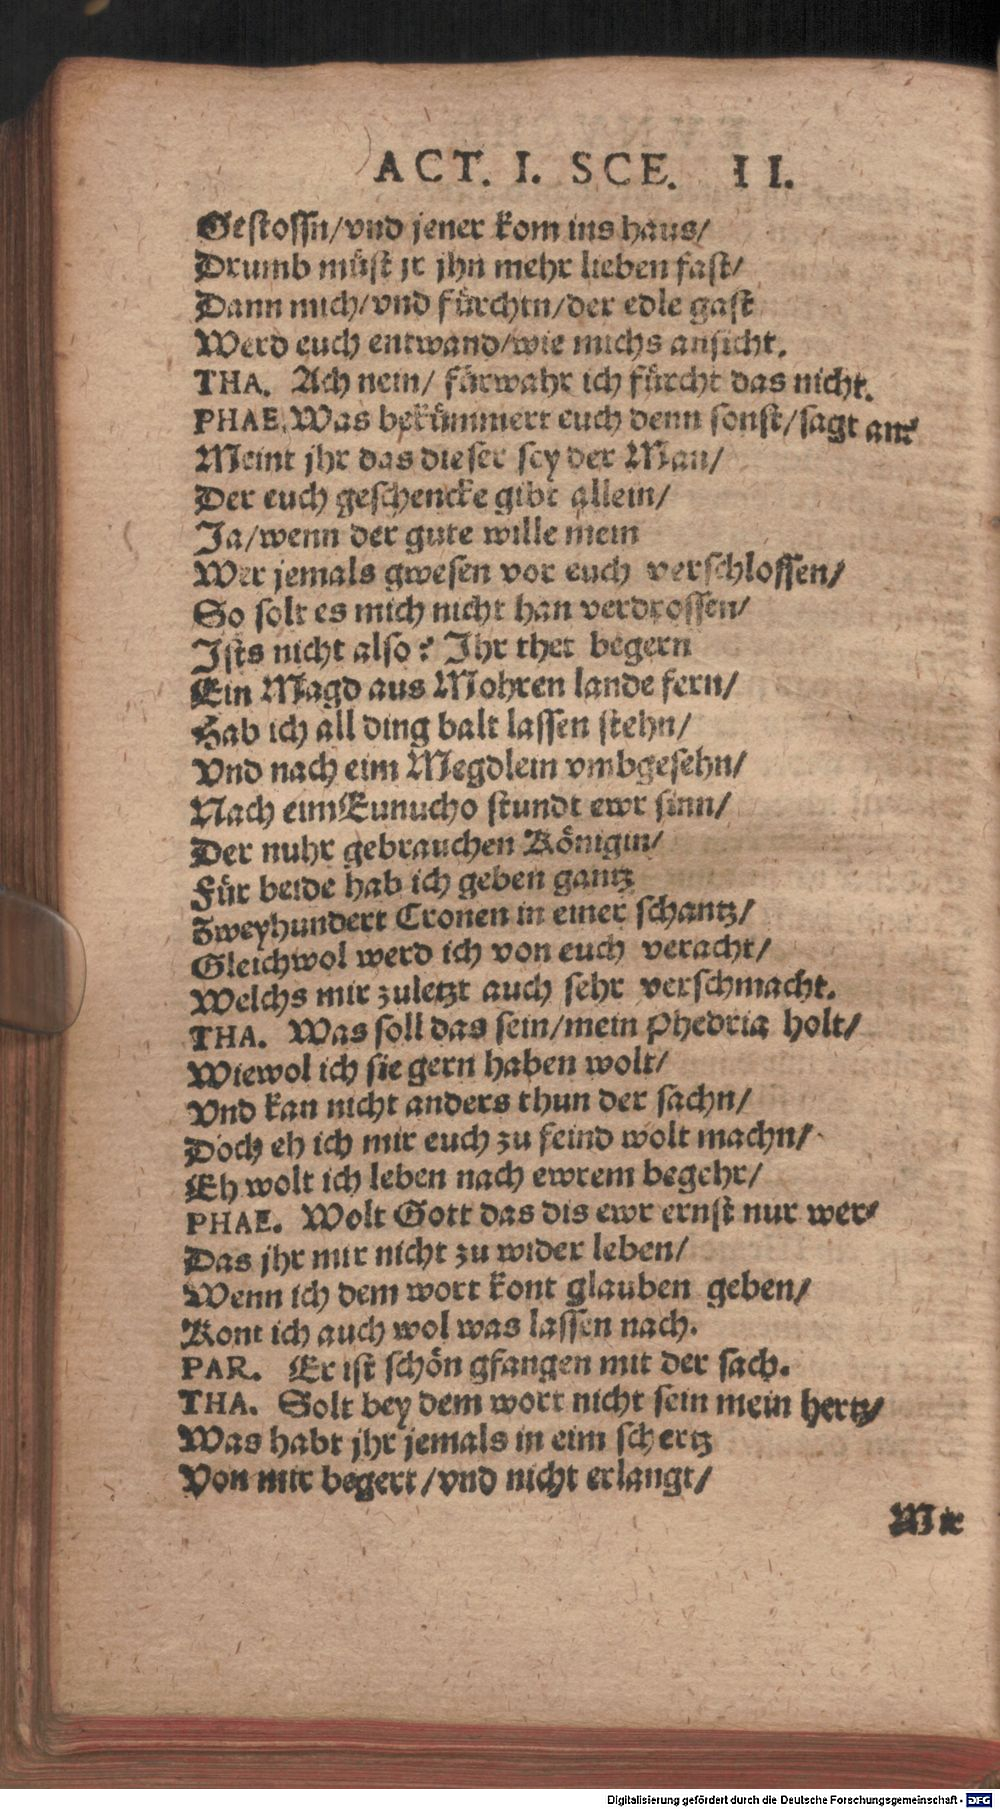 ACT. I. SCE. II.
Gestossn/vnd jener kom ins haus/
Drumb müst jr jhn mehr lieben fast/
Dann mich/vnd fürchtn/der edle gast
Werd euch entwand/wie michs ansicht.
THA. Ach nein/ fürwahr ich fürcht das nicht.
PHAE. Was bekümmert euch denn sonst/sagt an?
Meint jhr das dieser sey der Man/
Der euch geschencke gibt allein/
Ja/wenn der gute wille mein
Wer jemals gwesen vor euch verschlossen/
So solt es mich nicht han verdrossen/
Ists nicht also? Ihr thet begern
Ein Magd aus Mohren lande fern/
Hab ich all ding balt lassen stehn/
Vnd nach eim Megdlein vmbgesehn/
Nach eim Eunucho stundt ewr sinn/
Der nuhr gebrauchen Königin/
Für beide hab ich geben gantz
Zweyhundert Cronen in einer schantz/
Gleichwol werd ich von euch veracht/
Welchs mir zuletzt auch sehr verschmacht.
THA. Was soll das sein/mein Phedria holt/
Wiewol ich sie gern haben wolt/
Vnd kan nicht anders thun der sachn/
Doch eh ich mir euch zu feind wolt machn/
Eh wolt ich leben nach ewrem begehr/
PHAE. Wolt Gott das dis ewr ernst nur wer/
Das jhr mir nicht zu wider leben/
Wenn ich dem wort kont glauben geben/
Kont ich auch wol was lassen nach.
PAR. Er ist schön gfangen mit der sach.
THA. Solt bey dem wort nicht sein mein hertz/
Was habt jhr jemals in eim schertz
Von mir begert/vnd nicht erlangt/
Mir
Digitalisierung gefördert durch die Deutsche Forschungsgemeinschaft - DFG